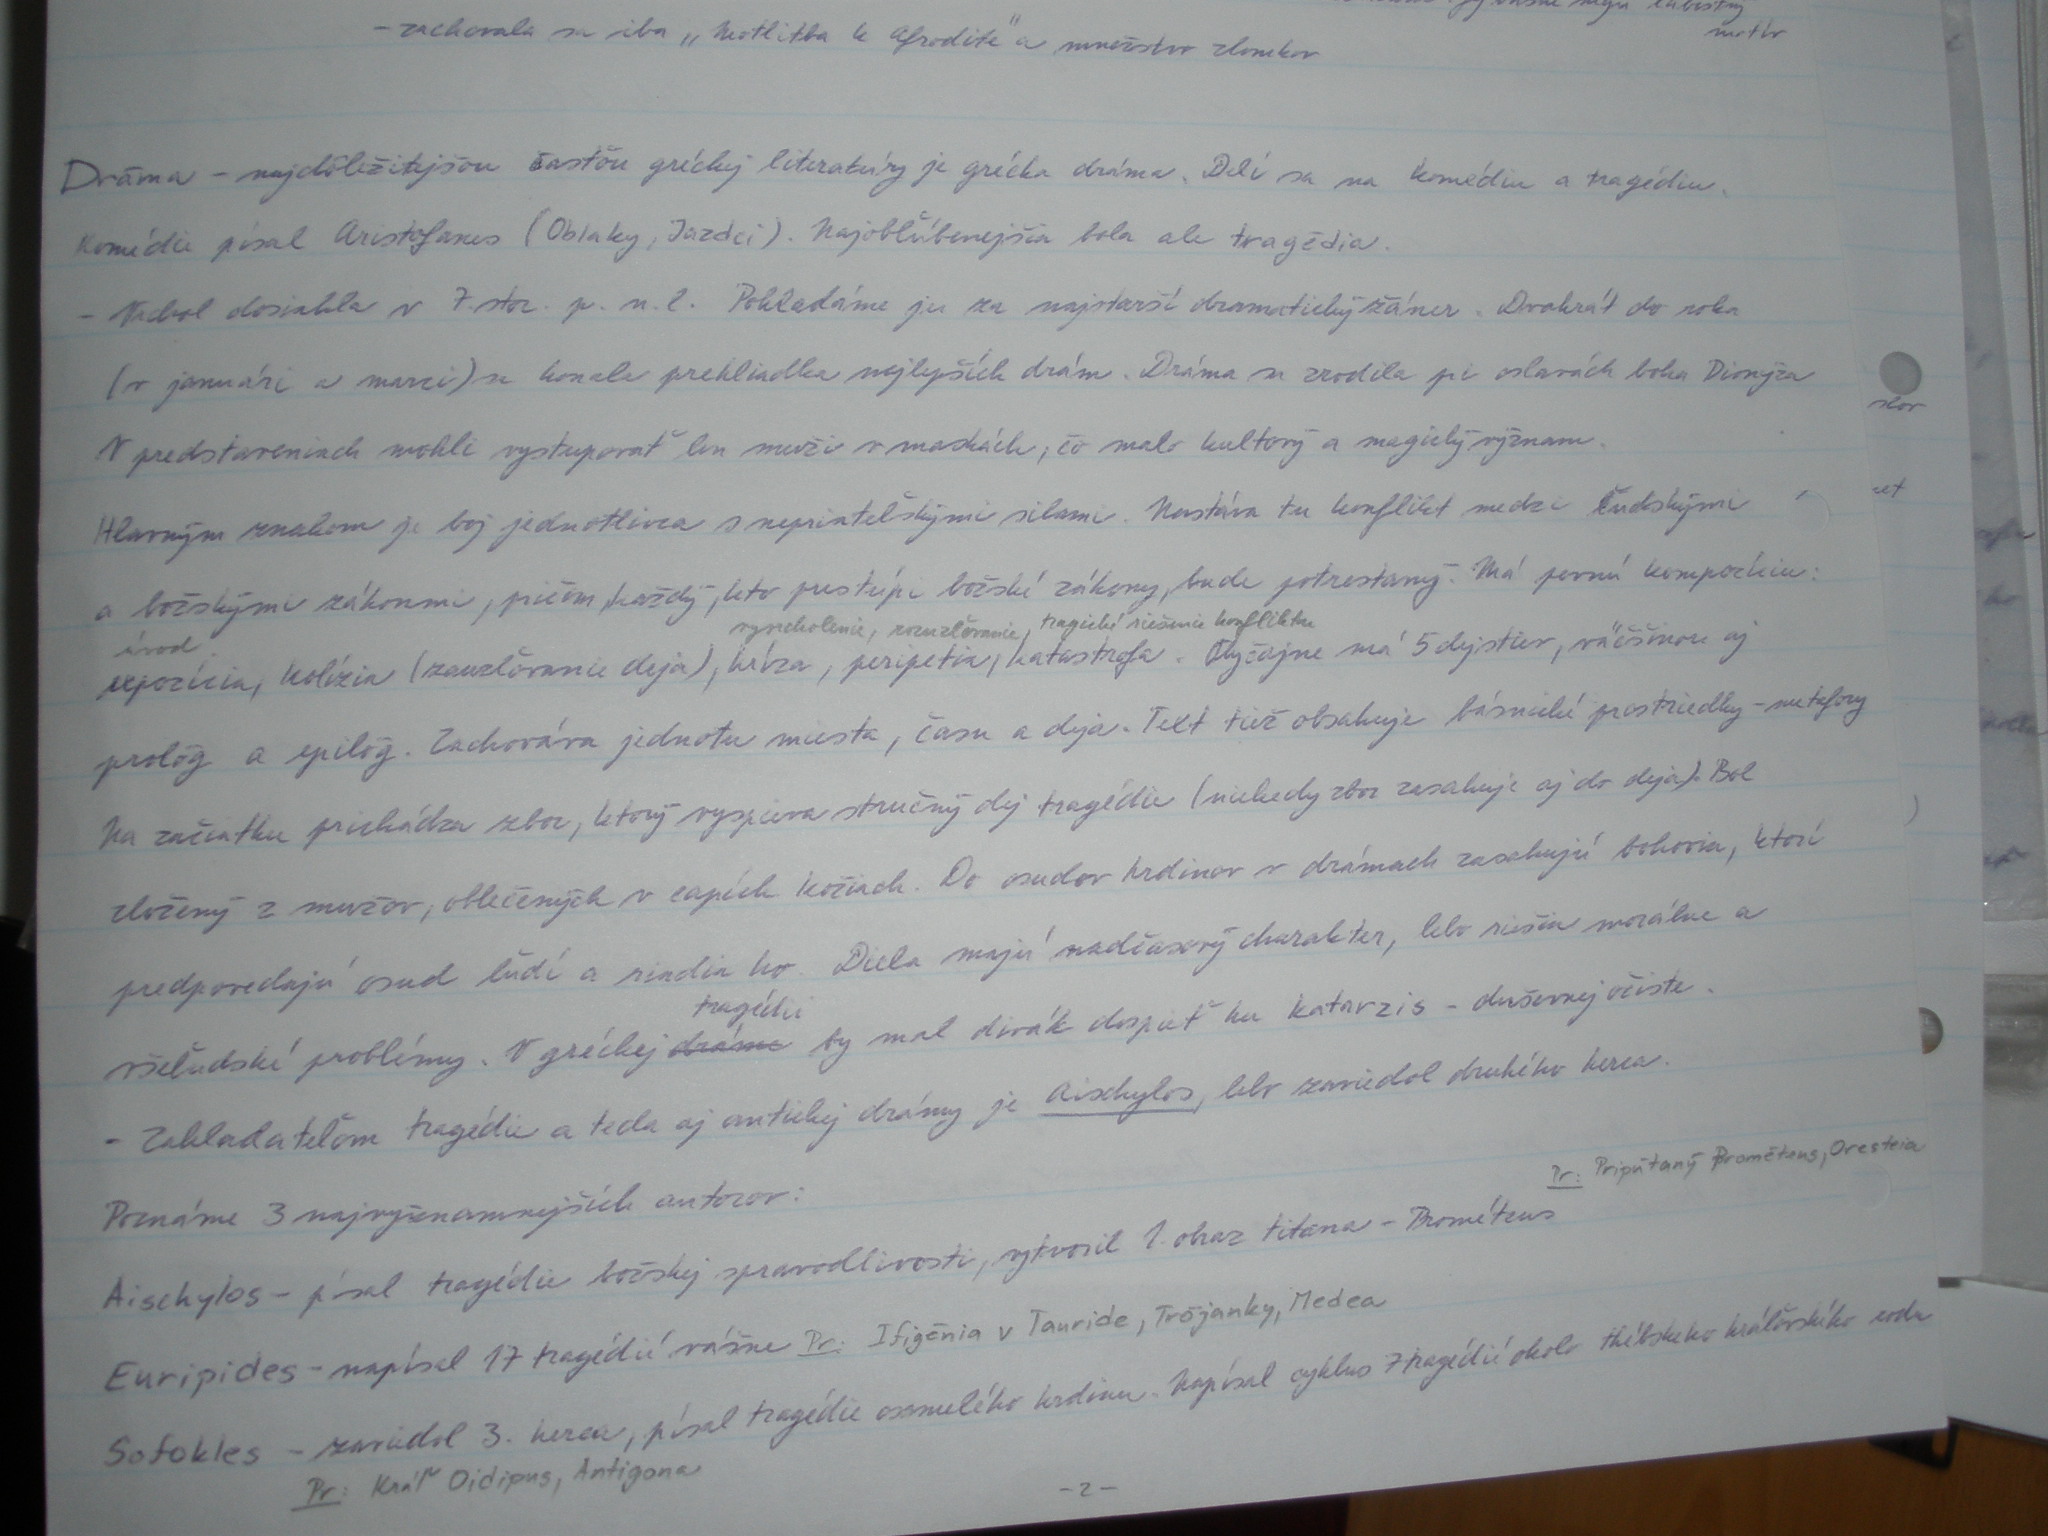 motív
- zachovala sa iba „Motlitba k Afrodite“ a množstvo zlomkov
Dráma - najdôležitejšou častou gréckej literatúry je grécka dráma. Delí sa na komédiu a tragédiu.
Komédie písal Aristofanes (Oblaky, Jazdci). Najobľúbenejšia bola ale tragédia.
- Vrchol dosiahla v 7. stor. p. n. l. Pokladáme ju za najstarší dramatický žáner. Dvakrát do roka
(v januári a marci) sa konala prehliadka najlepších drám. Dráma sa zrodila pri oslavách boha Dionýza
V predstaveniach mohli vystupovať len muži v maskách, čo malo kultový a magický význam.
Hlavným znakom je boj jednotlivca s nepriateľskými silami. Nastáva tu konflikt medzi ľudskými
a božskými zákonmi, pričom každý, kto prestúpi božské zákony, bude potrestaný. Má pevnú kompozíciu:
úvod vyvrcholenie, rozuzľovanie, tragické riešenie konfliktu
expozícia, kolízia (zauzľovanie deja), kríza, peripetia, katastrofa. Obyčajne má 5 dejstiev, väčšinou aj
prológ a epilóg. Zachováva jednotu miesta, času a deja. Text tiež obsahuje básnické prostriedky - metafory
Na začiatku prichádza zbor, ktorý vyspieva stručný dej tragédie (niekedy zbor zasahuje aj do deja). Bol
zložený z mužov, oblečených v capích kožiach. Do osudov hrdinov v drámach zasahujú bohovia, ktorí
predpovedajú osud ľudí a riadia ho. Diela majú nadčasový charakter, lebo riešia morálne a
tragédii
všeľudské problémy. V gréckej dráme by mal divák dospieť ku katarzis - duševnej očiste.
- Zakladateľom tragédie a teda aj antickej drámy je Aischylos, lebo zaviedol druhého herca.
Poznáme 3 najvýznamnejších autorov:
Pr: Pripútaný Prométeus, Oresteia
Aischylos - písal tragédie božskej spravodlivosti, vytvoril 1. obraz titana - Prométeus
Euripides - napísal 17 tragédií vášne Pr: Ifigénia v Tauride, Trójanky, Medea
Sofokles - zaviedol 3. herca, písal tragédie osamelého hrdinu. Napísal cyklus 7 tragédií okolo thébskeho kráľovského rodu
Pr: Kráľ Oidipus, Antigona
- 2 -